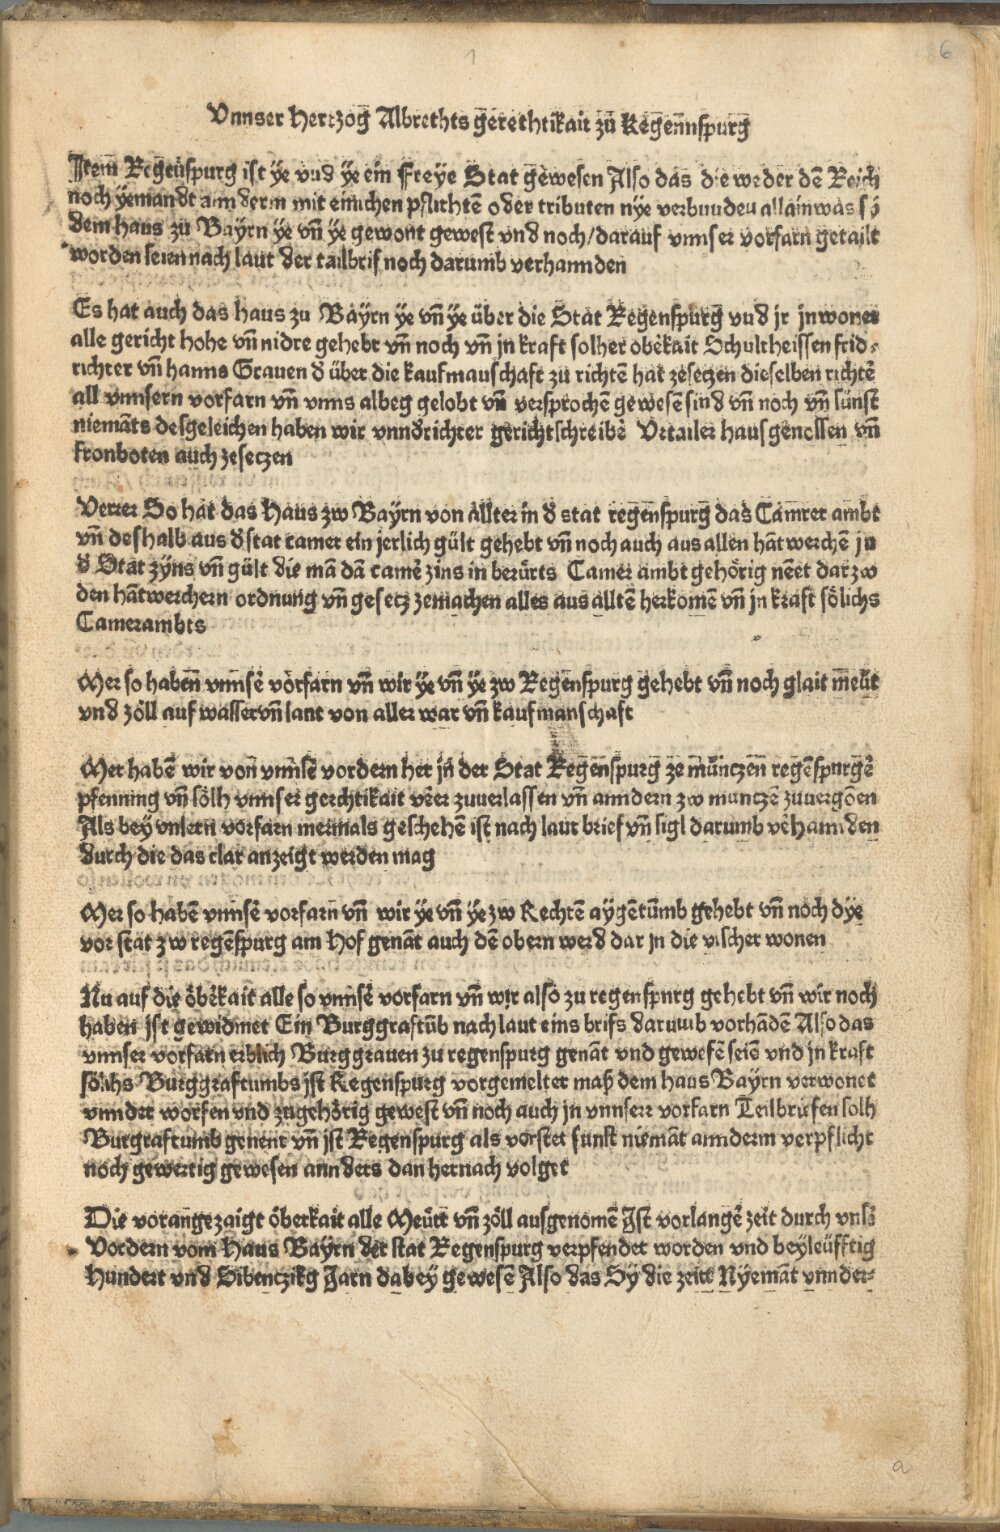 1
6
Vnnser Hertzog Albrechts gerechtikait zu Regennspurg
Jtem Regenspurg ist ye vnd ye ein Freye Stat gewesen Also das die weder dē Reich
noch yemandt anndern mit einichen pflichtē oder tributen nye verbunden allain was sy
dem haus zu Bayrn ye vñ ye gewont gewest vnd noch / darauf vnnser vorfarn getailt
worden seien nach laut der tailbrif noch darumb verhannden
Es hat auch das haus zu Bayrn ye vñ ye über die Stat Regenspurg vnd jr jnwoner
alle gericht hohe vñ nidre gehebt vñ noch vñ jn kraft solher obēkait Schultheissen frid⸗
richter vñ hanns Grauen d über die kaufmanschaft zu richtē hat zesetzen dieselben richtē
all vnnsern vorfarn vñ vnns albeg gelobt vñ versprochē gewesē sind vñ noch vñ sünst
niemāts desgeleichen haben wir vnndrichter gerichtschreibē Vrtailer hausgenossen vñ
fronboten auch zesetzen
Verrer So hat das Haus zw Bayrn von allter in d stat regenspurg das Camrer ambt
vñ deshalb aus d stat camer ein jerlich gült gehebt vñ noch auch aus allen hātwerchē jn
d Stat zyns vñ gült die mā dā camē zins in berürts Camer ambt gehörig nēet dar zw
den hātwerchern ordnung vñ gesetz zemachen alles aus alltē herkomē vñ jn kraft sölichs
Camerambts
Mer so habenn vnnsē vorfarn vñ wir ye vñ ye zw Regenspurg gehebt vñ noch glait meüt
vnd zöll auf wasser vñ lant von aller war vñ kaufmanschaft
Mer habē wir von vnnsē vordern her jn der Stat Regenspurg ze münczenn regēspurgē
pfenning vñ sölh vnnser gerchtikait vērer zuuerlassen vñ anndern zw munczē zuuergōen
Als bey vnsern vorfarn mermals geschehē ist nach laut brief vñ sigl darumb vēhannden
durch die das clar anzeigt werden mag
Mer so habē vnnsē vorfarn vñ wir ye vñ ye zw Rechtē aygētūmb gehebt vñ noch dye
vor stat zw regēspurg am Hof genāt auch dē obern werd dar jn die vischer wonen
Nu auf die öbēkait alle so vnnsē vorfarn vñ wir also zu regenspurg gehebt vñ wir noch
haben jst gewidmet Ein Burggraftūb nach laut eins brifs darumb vorhādē Also das
vnnser vorfarn erblich Burggrauen zu regenspurg genāt vnd gewesē seiē vnd jn kraft
sölihs Burggraftumbs jst Regenspurg vorgemelter maß dem haus Bayrn verwonet
vnnder worfen vnd zugehörig gewest vñ noch auch jn vnnserr vorfarn Teilbrifen solh
Burgraftumb genent vñ jst Regenspurg als vorstet sunst niemāt annderm verpflicht
noch gewertig gewesen annders dan hernach volget
Die vorangezaigt öberkait alle Meütt vñ zöll ausgenomē Jst vor langē zeit durch vnsē
Vordern vom Haus Bayrn der stat Regenspurg verpfendet worden vnd beyleüfftig
Hundert vnd Sibenczikg Jarn dabey gewesē Also das Sy die zeitt Nyemāt vnnder⸗
a